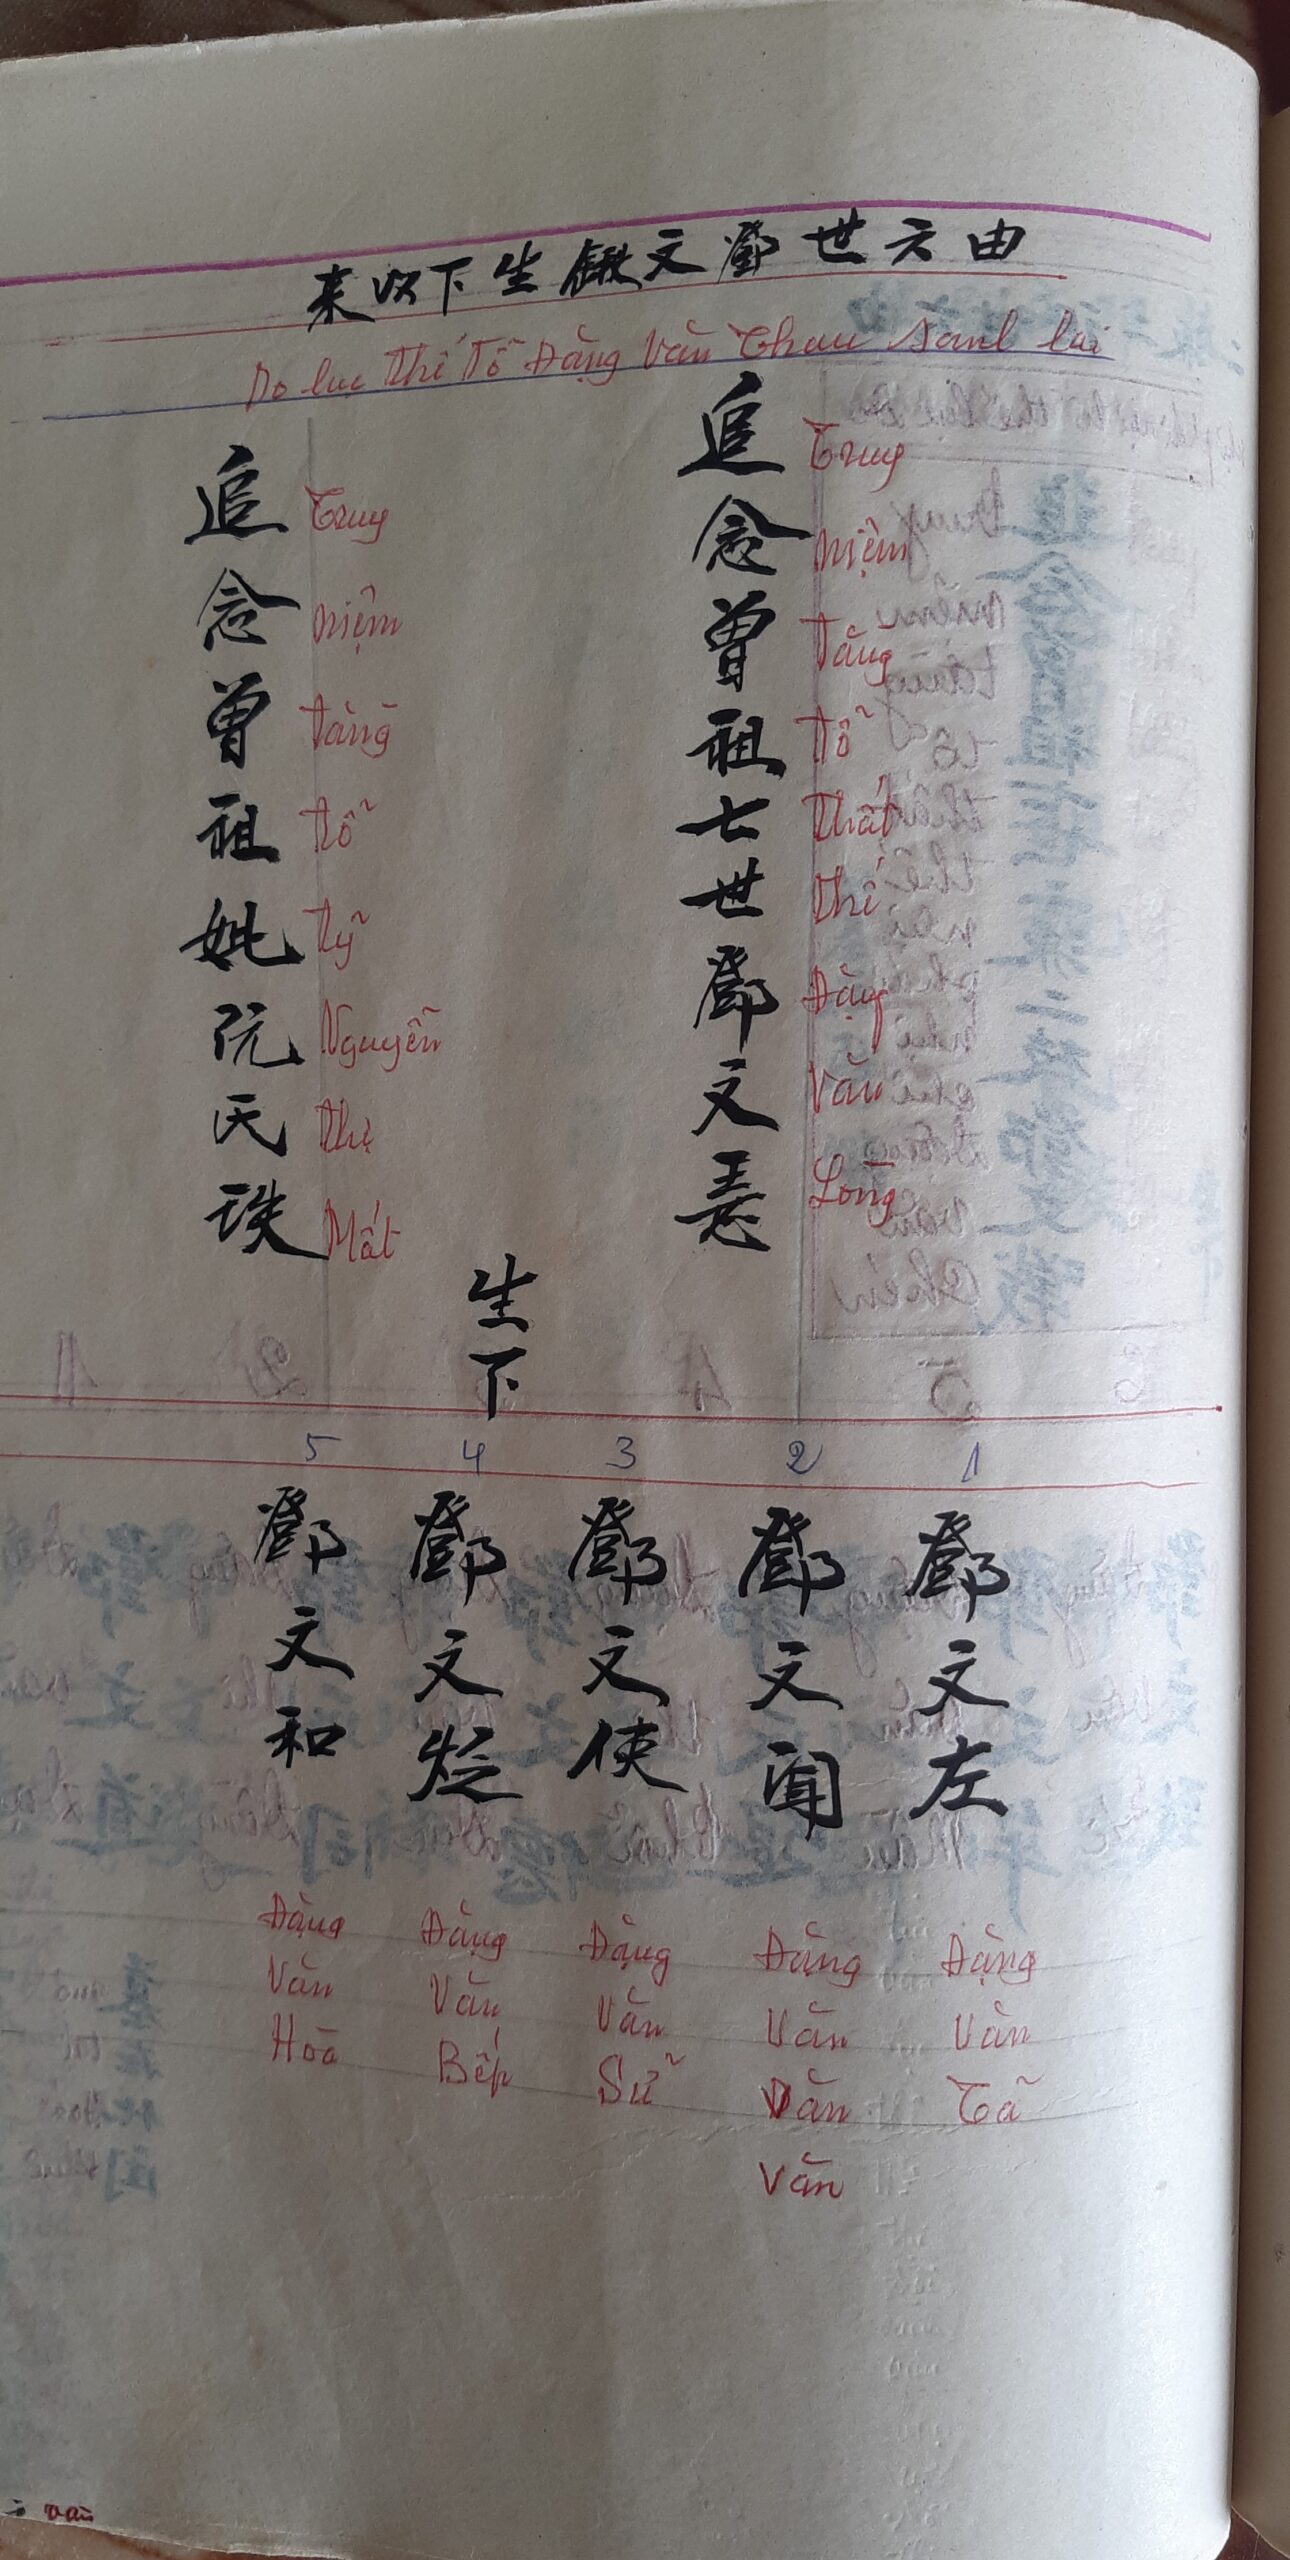 由六世鄧文鍬生下以来
Do lục thế Tổ Đặng Văn Thau sanh lai
追念曾祖七世鄧文惹
Truy niệm tằng tỗ thất thế Đặng Văn Lòng
追念曾祖妣阮氏珠
Truy niệm tằng tỗ tỹ Nguyễn thị Mất
生下
1 2 3 4 5
鄧文左
鄧文聞
鄧文使
鄧文
鄧文和
Đặng Văn Tã
Đặng Văn Dăn Văn
Đặng Văn Sữ
Đặng Văn Bếp
Đặng Văn Hoà
văn